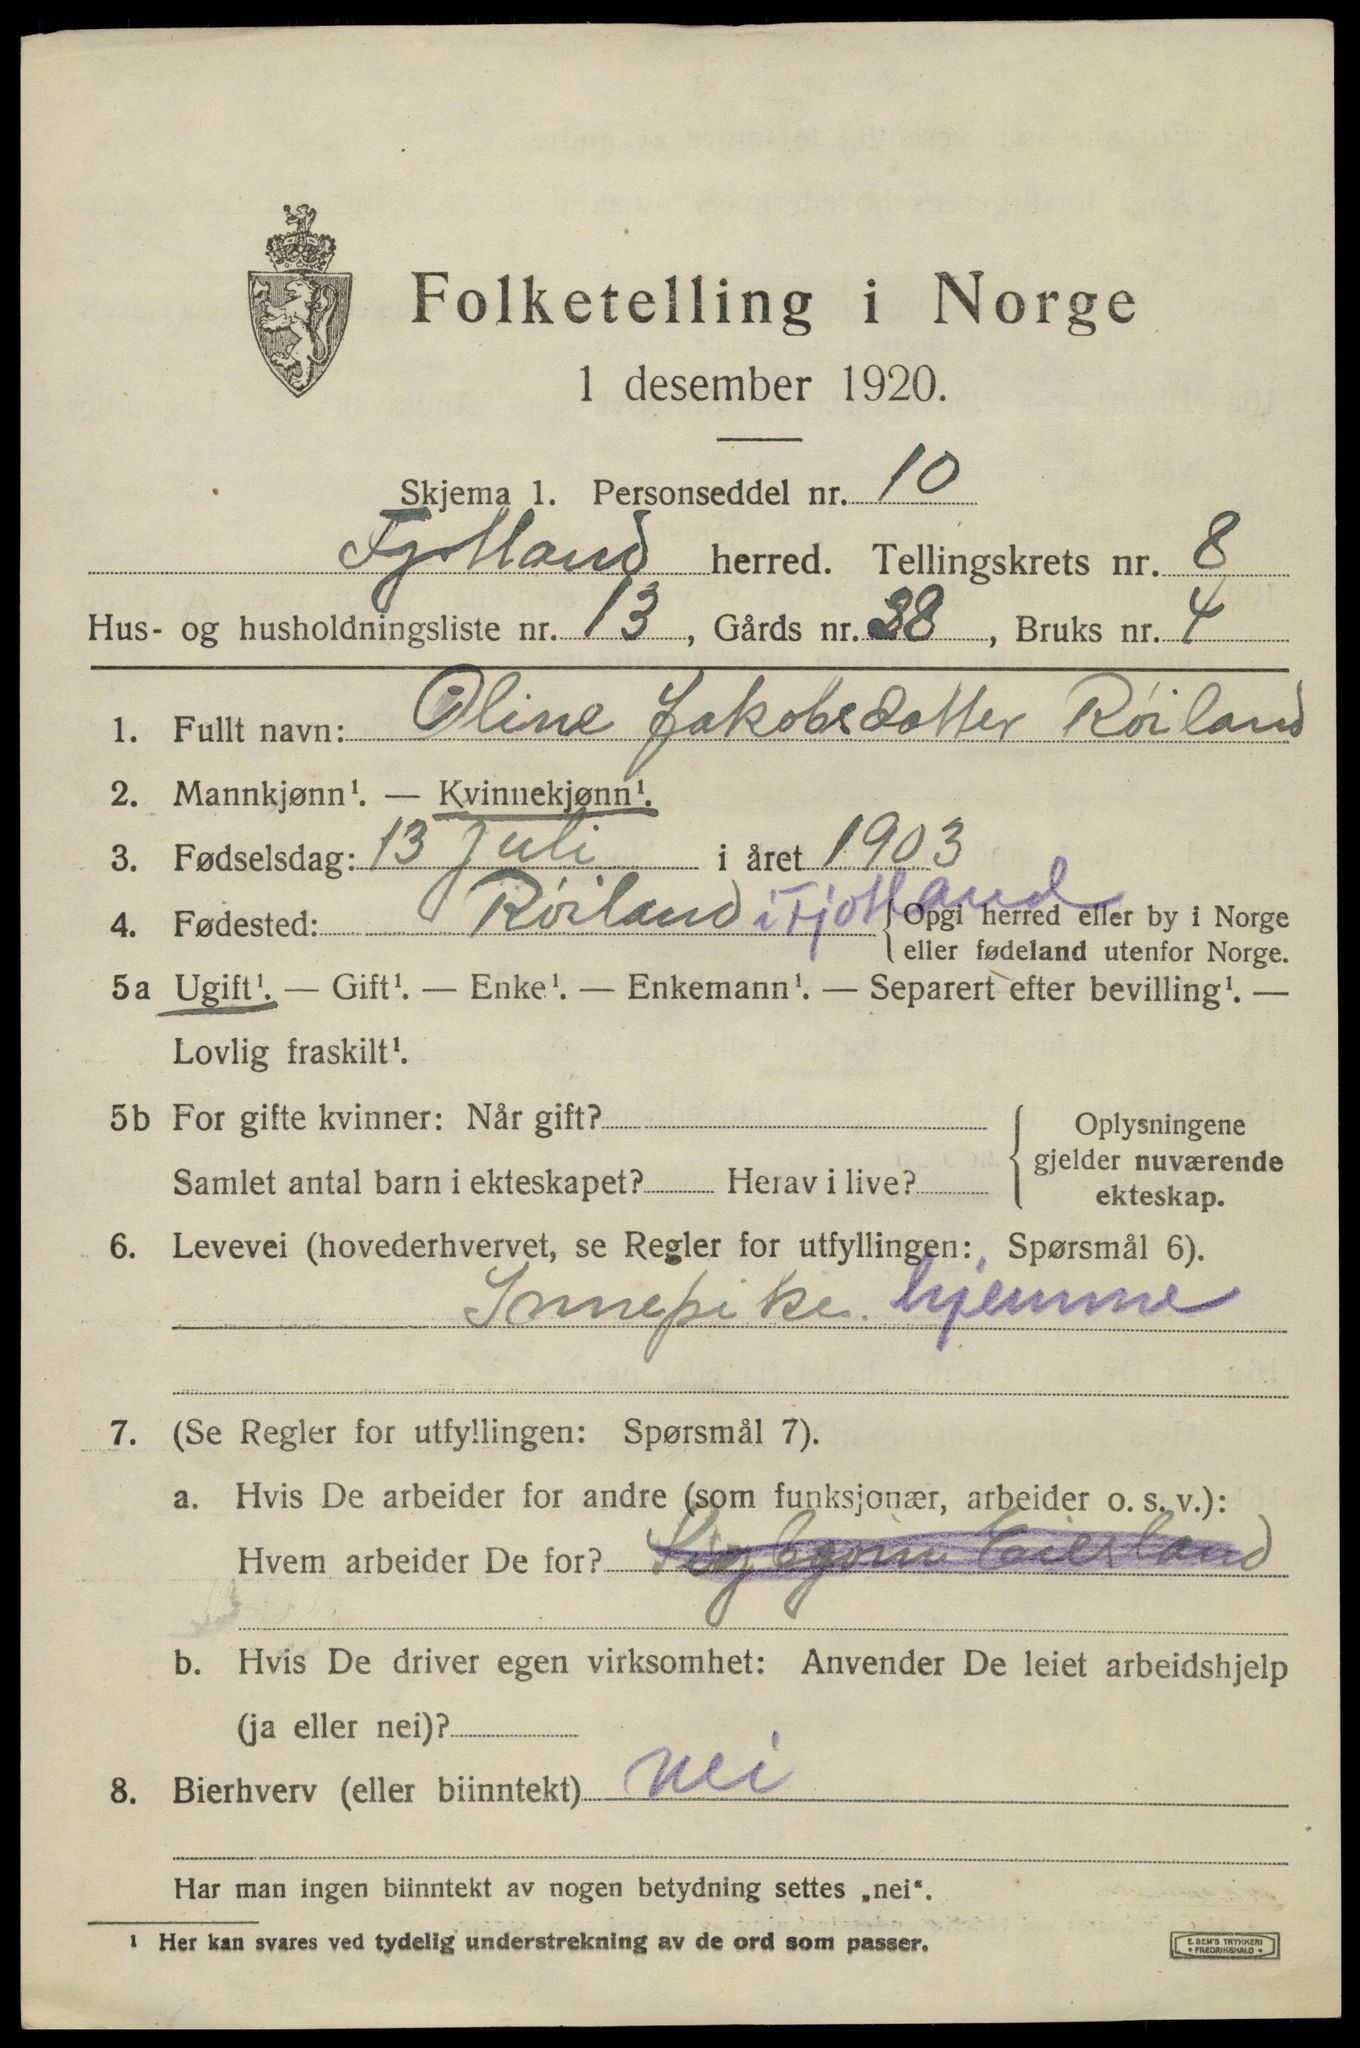 Folketelling i Norge
1 desember 1920.
Skjema 1. Personseddel nr. 10
Fjotland herred. Tellingskrets nr. 8
Hus- og husholdningsliste nr. 13, Gårds nr. 38, Bruks nr. 4
1. Fullt navn: Oline Jakobsdatter Röiland
2. Mannkjønn¹. — Kvinnekjønn¹.
3. Fødselsdag: 13 Juli i året 1903
4. Fødested: Röiland i Fjotland { Opgi herred eller by i Norge
eller fødeland utenfor Norge.
5a Ugift¹. — Gift¹. — Enke¹. — Enkemann¹. — Separert efter bevilling¹. —
Lovlig fraskilt¹.
5b For gifte kvinner: Når gift?
Samlet antal barn i ekteskapet? Herav i live?
Oplysningene
gjelder nuværende
ekteskap.
6. Levevei (hovederhvervet, se Regler for utfyllingen: Spørsmål 6).
Innepike. hjemme
7. (Se Regler for utfyllingen: Spørsmål 7).
a. Hvis De arbeider for andre (som funksjonær, arbeider o. s. v.):
Hvem arbeider De for? Eiesland
b. Hvis De driver egen virksomhet: Anvender De leiet arbeidshjelp
(ja eller nei)?
8. Bierhverv (eller biinntekt) nei
Har man ingen biinntekt av nogen betydning settes „nei“.
¹ Her kan svares ved tydelig understrekning av de ord som passer.
E. SEM'S TRYKKERI
• FREDRIKSHALD •